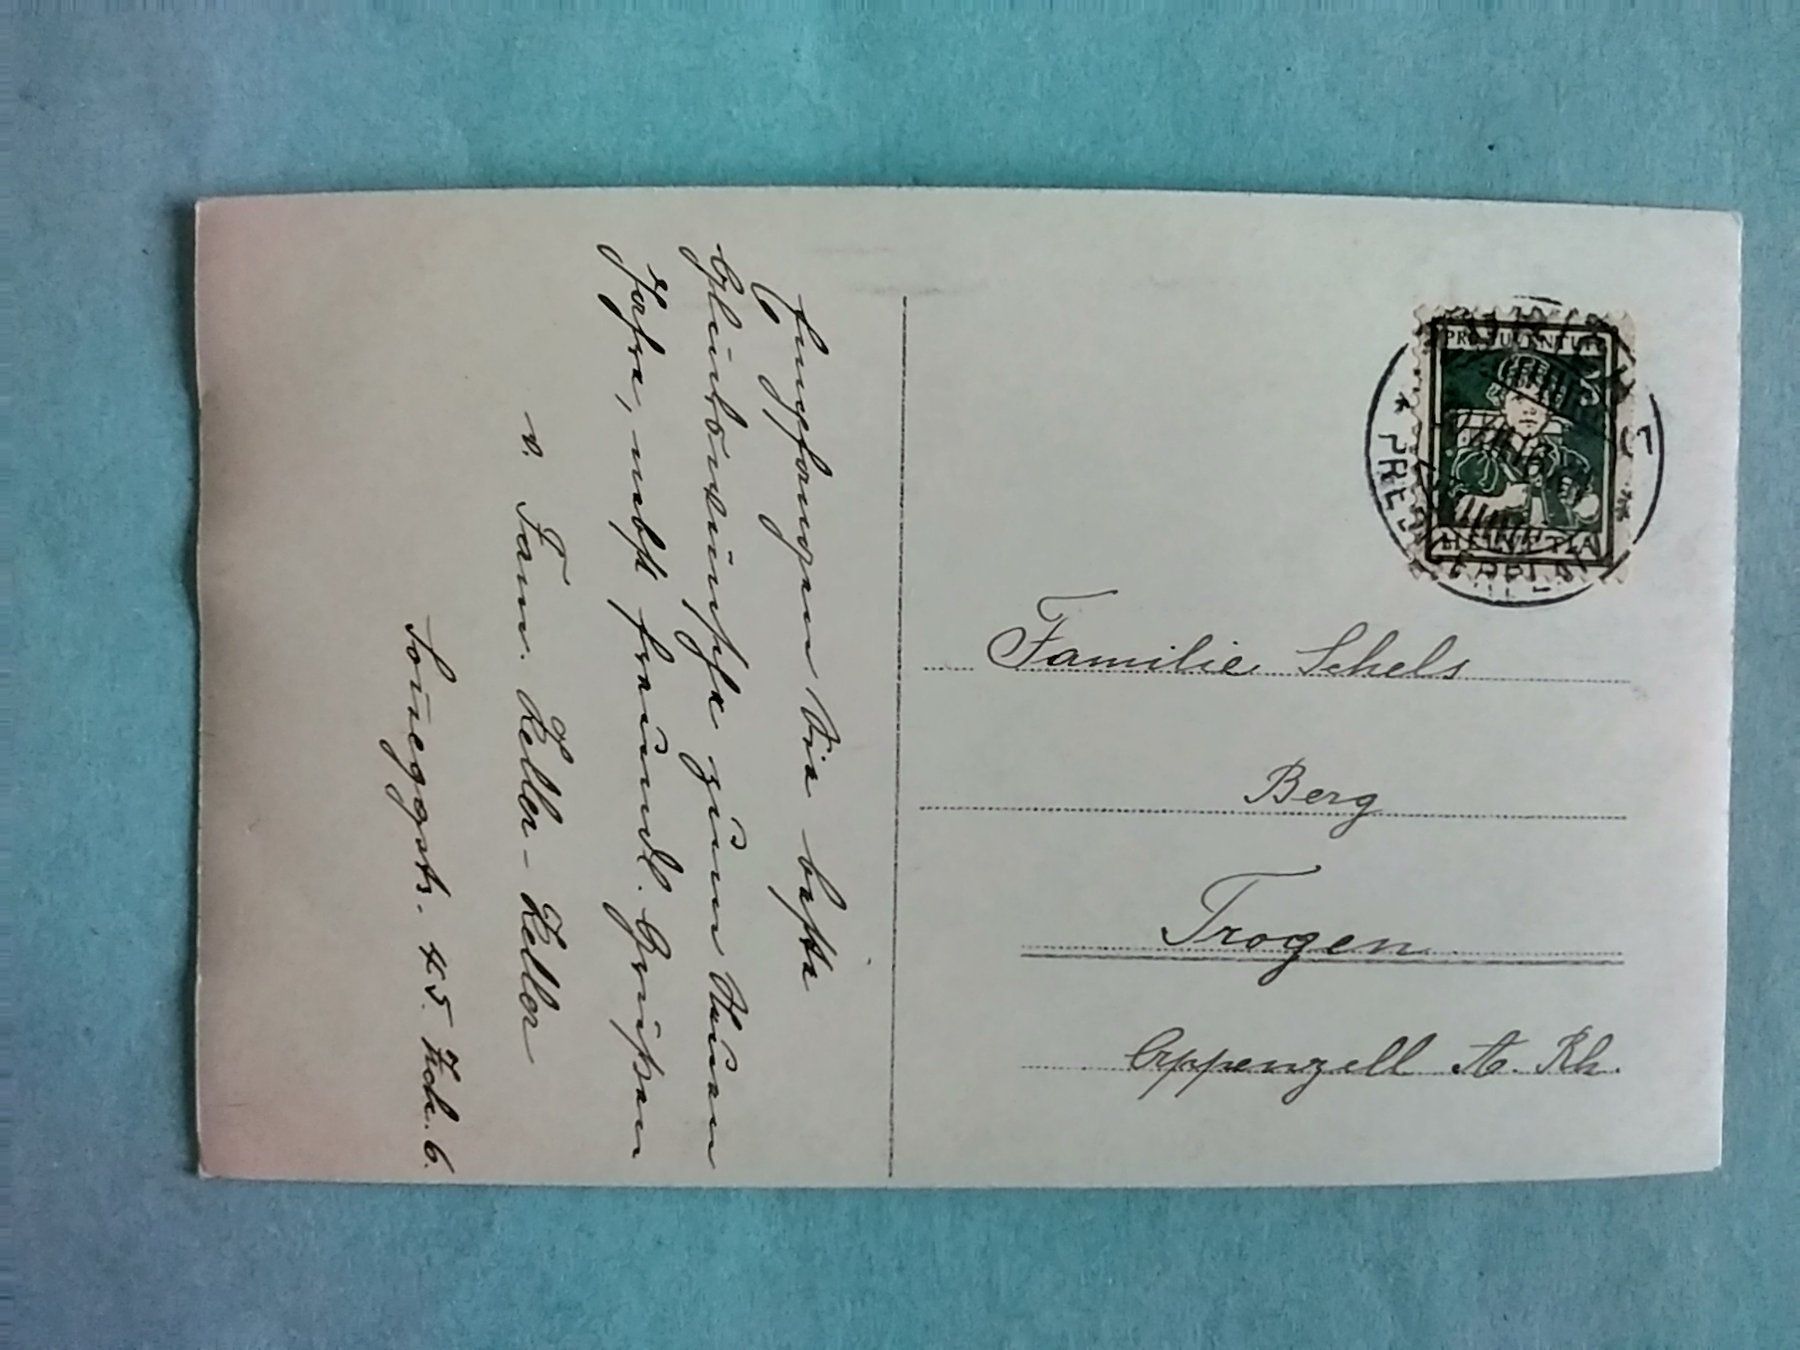 Empfangen Sie beste
Glückwünsche zum Neuen
Jahre, nebst freundl. Grüssen
v. Fam. Keller-Keller
Sonneggstr. 45. Zch. 6.
PRO JUVENTUTE
HELVETIA
Familie Schels
Berg
Trogen
Appenzell A. Rh.